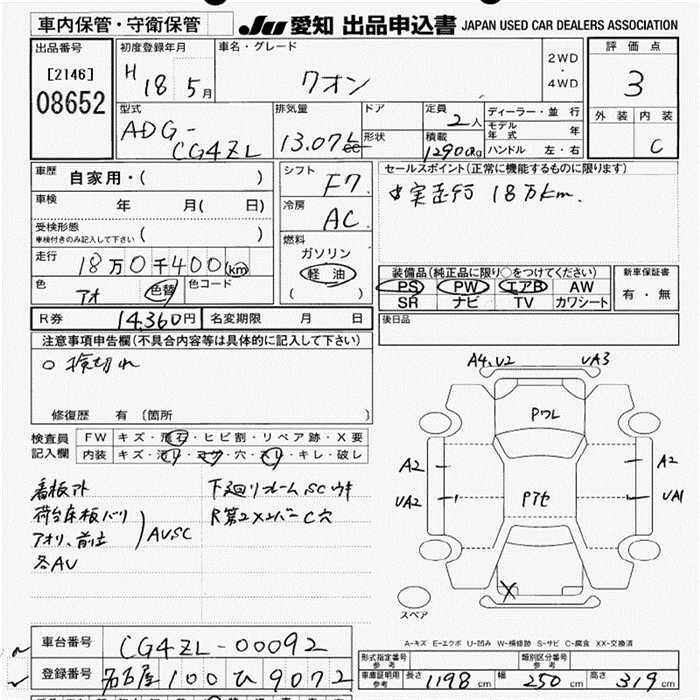 車内保管・守衛保管
JU 愛知 出品申込書 JAPAN USED CAR DEALERS ASSOCIATION
出品番号
[2146]
08652
初度登録年月
H 18 5月
車名・グレード
クオン
2WD
・
4WD
評価点
3
外装 内装
C
型式
ADG-
CG4ZL
排気量
13.07L cc
ドア
形状
定員
2人
積載
12900Kg
ディーラー・並行
モデル年式 年
ハンドル 左・右
車歴 自家用・( )
車検 年 月( 日)
受検形態
車検付きのみ記入して下さい ( )
走行 18万0千400km
色 アオ 色替 色コード
シフト
F7
冷房
AC
燃料
ガソリン
軽油
( )
セールスポイント(正常に機能するものに限ります)
実走行 18万km.
装備品(純正品に限り○をつけてください)
PS PW エアB AW
SR ナビ TV カワシート
新車保証書
有・無
R券 14,360円 名変期限 月 日
後日品
注意事項申告欄(不具合内容等は具体的に記入して下さい)
○ 検切れ
修復歴 有 (箇所 )
検査員
記入欄
FW キズ・飛石・ヒビ割・リペア跡・X要
内装 キズ・汚レ・コゲ・穴・スレ・キレ・破レ
看板アト
荷台床板バリ
アオリ、前立
各AU
AU、SC
下廻リフレーム、SCウキ
R第2メンバーC穴
A4、U2
UA3
PフL
A2
A2
UA2
UA1
Pアセ
X
スペア
A-キズ E-エクボ U-凹み W-補修跡 S-サビ C-腐食 XX-交換済
車台番号 CG4ZL-00092
登録番号 名古屋 100 ひ 9072
形式指定番号
参考
類別区分番号
参考
車庫証明用
参考
長さ 1198 cm 幅 250 cm 高さ 319 cm